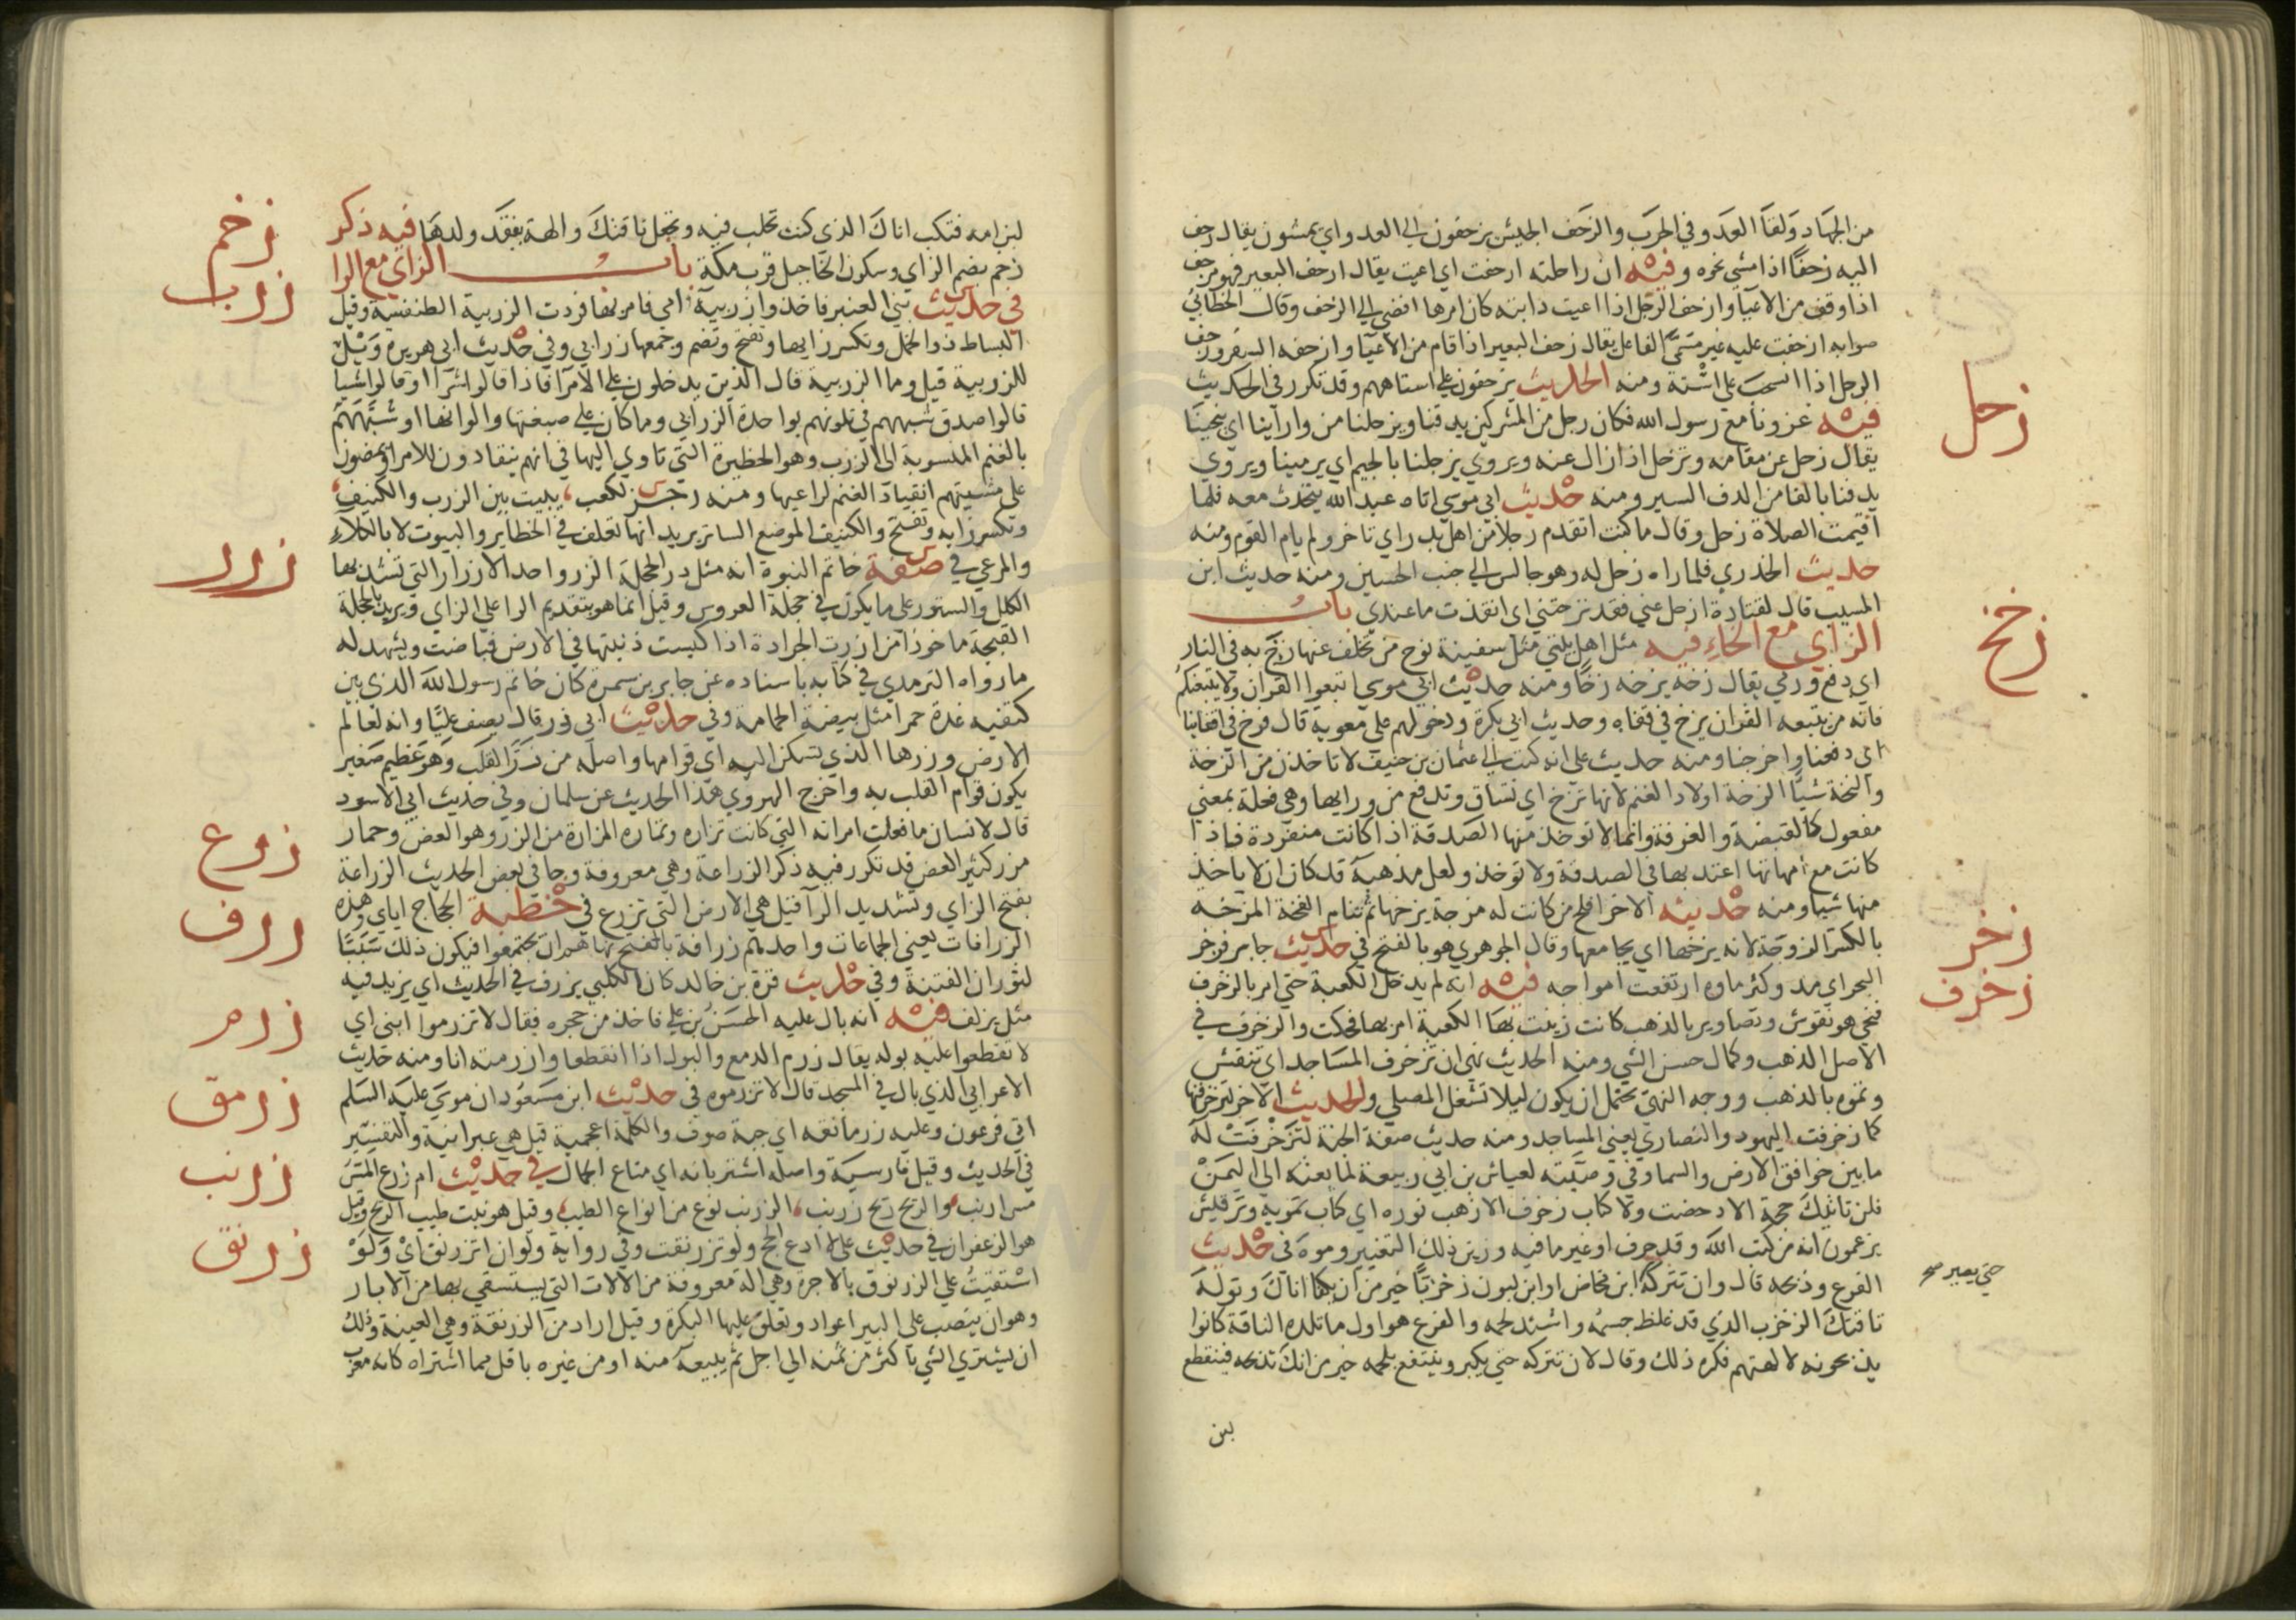 من الجهاد ولقاء العدو في الحرب والزحف الجيش يزحفون الى العدو اي يمشون يقال زحف
اليه زحفا اذا مشى نحوه وفيه ان راحلته ازحفت اي اعيت يقال ازحف البعير فهو مزحف
اذا وقف من الاعيا وازحف الرجل اذا اعيت دابته كان امرها افضى الى الزحف وقال الخطابي
صوابه ازحفت عليه غير مسمى الفاعل يقال زحف البعير اذا قام من الاعيا وازحفه السفر وزحف
الرجل اذا انسحب على استه ومنه الحديث يزحفون على استاههم وقد تكرر في الحديث
زحل
فيه غزونا مع رسول الله فكان رجل من المشركين يدقنا ويزحلنا من وراينا اي ينحينا
يقال زحل عن مقامه وتزحل اذا زال عنه ويروي يزجلنا بالجيم اي يرمينا ويروي
يدفنا بالفا من الدف السير ومنه حديث ابي موسى اتاه عبد الله يتحدث معه فلما
اقيمت الصلاة زحل وقال ما كنت اتقدم رجلا من اهل بدر اي تاخر ولم يام القوم ومنه
حديث الخدري فلما راه زحل له وهو جالس الى جنب الحسين ومنه حديث ابن
المسيب قال لقتادة ازحل عني فقد نزحتني اي انفذت ما عندي باب
زخخ
الزاي مع الخاء فيه مثل اهل بيتي مثل سفينة نوح من تخلف عنها زخ به في النار
اي دفع ورمي يقال زخه يزخه زخا ومنه حديث ابي موسى اتبعوا القران ولا يتبعنكم
فانه من يتبعه القران يزخ في قفاه وحديث ابي بكرة ودخولهم على معوية قال فزخ في اقفاينا
اي دفعنا واخرجنا ومنه حديث علي انه كتب الى عثمان بن حنيف لا تاخذن من الزخة
والنخة شيا الزخة اولاد الغنم لانها تزخ اي تساق وتدفع من ورايها وهي فعلة بمعني
مفعول كالقبضة والغرفة وانما لا توخذ منها الصدقة اذا كانت منفردة فاذا
كانت مع امهاتها اعتد بها في الصدقة ولا توخذ ولعل مذهبه قد كان ان لا ياخذ
منها شيا ومنه حديثه الاخر افلح من كانت له مزخة يزخها ثم تنام الفخة المزخه
بالكسر الزوجة لانه يزخها اي يجامعها وقال الجوهري هو بالفتح في حديث جابر فزخر
زخر
البحر اي مد وكثر ماوه وارتفعت امواجه فيه انه لم يدخل الكعبة حتى امر بالزخرف
زخرف
فنحي هو نقوش وتصاوير بالذهب كانت زينت بها الكعبة امر بها فحكت والزخرف في
الاصل الذهب وكمال حسن الشي ومنه الحديث نهى ان تزخرف المساجد اي تنقش
وتموه بالذهب ووجه النهي يحتمل ان يكون ليلا تشغل المصلي والحديث الاخر لتزخرفنها
كما زخرفت اليهود والنصارى يعني المساجد ومنه حديث صفة الجنة لتزخرفت له
ما بين خوافق الارض والسما وفي وصيته لعياش بن ابي ربيعة لما بعثه الى اليمن
فلن تاتيك حجة الا دحضت ولا كتاب زخرف الا ذهب نوره اي كتاب تمويه وترقيش
يزعمون انه من كتب الله وقد حرف او غير ما فيه وزين ذلك التغيير وموه في حديث
الفرع وذبحه قال وان تتركه ابن مخاض او ابن لبون زخزبا خير من ان تكفا اناك وتوله
حتى يصير صح
ناقتك الزخزب الذي قد غلظ جسمه واشتد لحمه والفرع هو اول ما تلده الناقة كانوا
يذبحونه لالهتهم فكره ذلك وقال لان تتركه حتى يكبر وينتفع بلحمه خير من انك تذبحه فينقطع
لبن
لبن امه فتكب اناك الذي كنت تحلب فيه وتجعل ناقتك والهة بفقد ولدها فيه ذكر
زخم
زخم بضم الزاي وسكون الخا جبل قرب مكة باب الزاي مع الرا
زرب
في حديث بني العنبر فاخذوا زربية امي فامر بها فردت الزربية الطنفسة وقيل
البساط ذو الخمل وتكسر زايها وتفتح وتضم وجمعها زرابي وفي حديث ابي هريرة ويل
للزربية قيل وما الزربية قال الذين يدخلون على الامرا فاذا قالوا شرا او قالوا شيا
قالوا صدق شبههم في تلونهم بواحدة الزرابي وما كان على صبغتها والوانها او شبههم
بالغنم المنسوبة الى الزرب وهو الحظيرة التي تاوي اليها في انهم ينقادون للامرا ويمضون
على مشيتهم انقياد الغنم لراعيها ومنه رجز لكعب يبيت بين الزرب والكنيف
وتكسر زايه وتفتح والكنيف الموضع الساتر يريد انها تعلف في الحظاير والبيوت لا بالكلاء
زرر
والمرعي في صفة خاتم النبوة انه مثل زر الحجلة الزر واحد الازرار التي تشد بها
الكلل والستور على ما يكون في حجلة العروس وقيل انما هو بتقديم الرا على الزاي ويريد بالحجلة
القبجة ماخوذا من ازرت الجرادة اذا كبست ذنبها في الارض فباضت ويشهد له
ما رواه الترمذي في كتابه باسناده عن جابر بن سمرة كان خاتم رسول الله الذي بين
كتفيه غدة حمرا مثل بيضة الحمامة وفي حديث ابي ذر قال يصف عليا وانه لعالم
الارض وزرها الذي تسكن اليه اي قوامها واصله من زر القلب وهو عظيم صغير
يكون قوام القلب به واخرج الهروي هذا الحديث عن سلمان وفي حديث ابي الاسود
قال لانسان ما فعلت امراته التي كانت تزاره وتماره المزارة من الزر وهو العض وحمار
زرع
مزر كثير العض قد تكرر فيه ذكر الزراعة وهي معروفة وجا في بعض الحديث الزراعة
بفتح الزاي وتشديد الرا قيل هي الارض التي تزرع في خطبة الحجاج اياي وهذه
زرف
الزرافات يعني الجماعات واحدهم زرافة بالفتح نهاهم ان يجتمعوا فيكون ذلك سببا
لثوران الفتنة وفي حديث قرة بن خالد كان الكلبي يزرف في الحديث اي يزيد فيه
زرم
مثل يزلف فيه انه بال عليه الحسن بن علي فاخذ من حجره فقال لا تزرموا ابني اي
لا تقطعوا عليه بوله يقال زرم الدمع والبول اذا انقطعا وازرمته انا ومنه حديث
زرمق
الاعرابي الذي بال في المسجد قال لا تزرموه في حديث ابن مسعود ان موسى عليه السلم
اتى فرعون وعليه زرمانقه اي جبة صوف والكلمة اعجمية قيل هي عبرانية والتفسير
زرنب
في الحديث وقيل فارسية واصله اشتربانه اي متاع الجمال في حديث ام زرع المس
مس ارنب والريح ريح زرنب الزرنب نوع من انواع الطيب وقيل هو نبت طيب الريح وقيل
زرنق
هو الزعفران في حديث علي لا ادع الحج ولو تزرنقت وفي رواية ولو ان اتزرنق اي ولو
استقيت على الزرنوق بالاجرة وهي الة معروفة من الالات التي يستسقي بها من الابار
وهو ان ينصب على البير اعواد وتعلق عليها البكرة وقيل اراد من الزرنقة وهي العينة وذلك
ان يشتري الشي باكثر من ثمنه الى اجل ثم يبيعه منه او من غيره باقل مما اشتراه كانه معرب